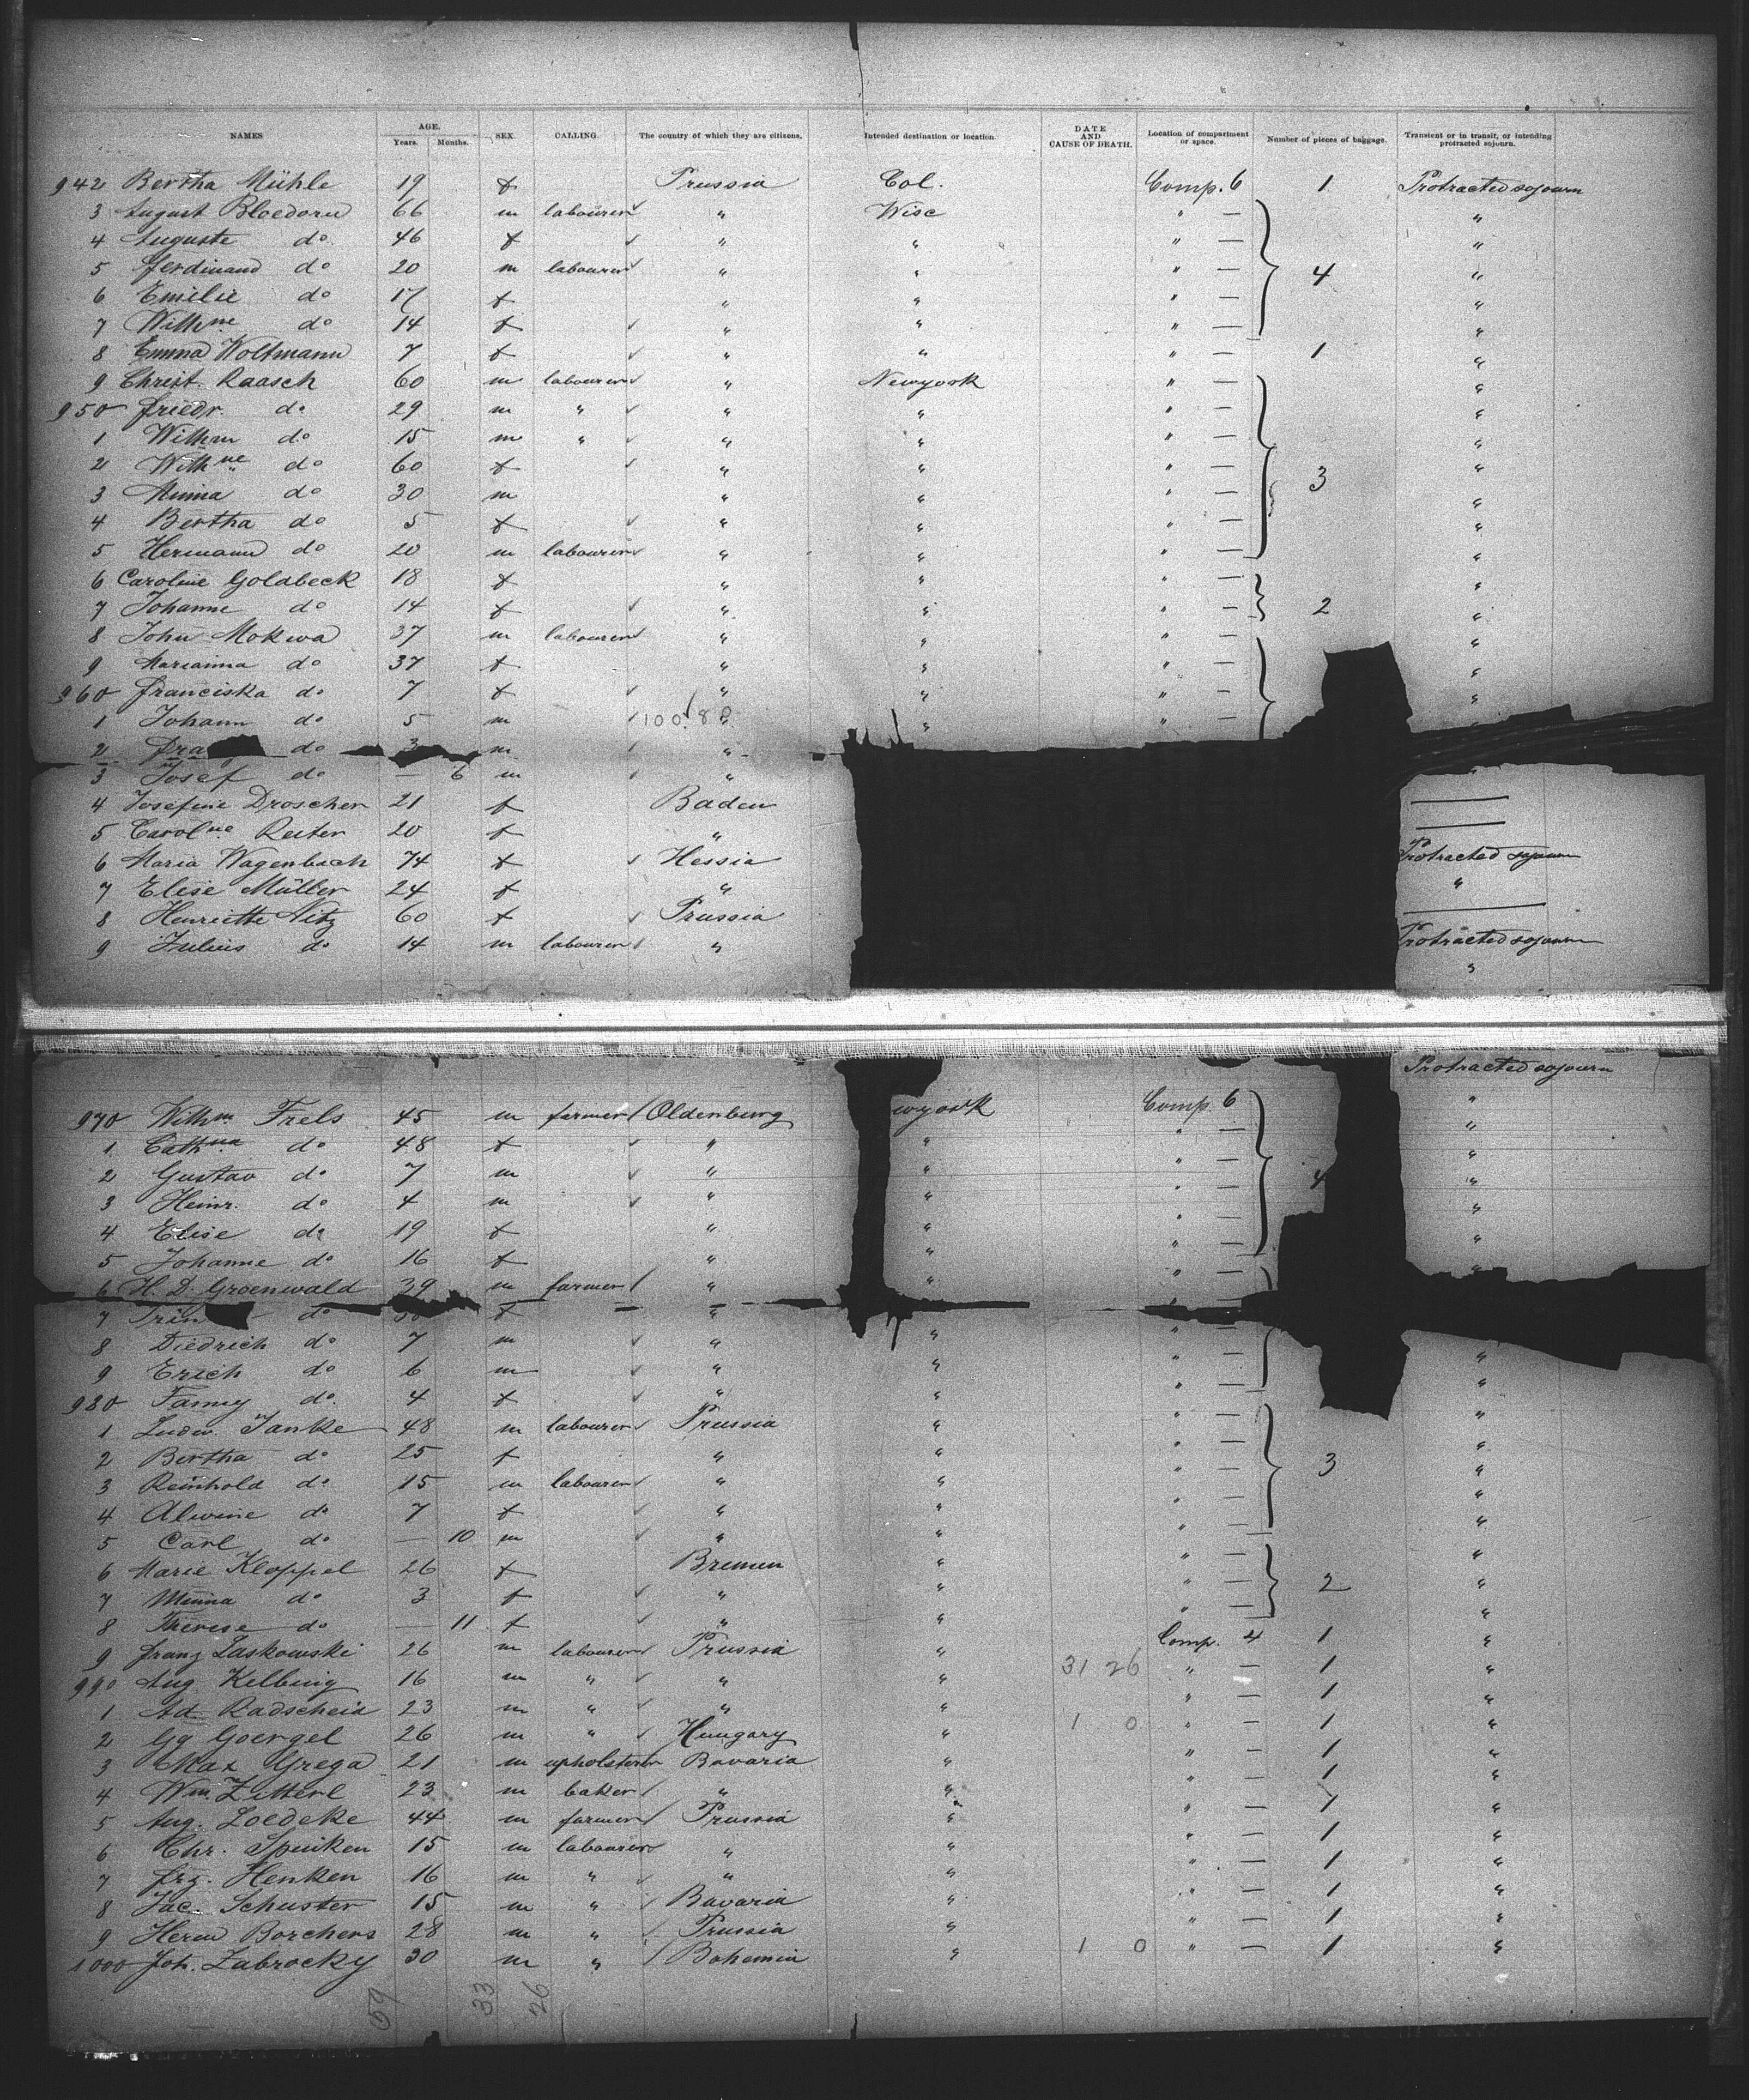 NAMES AGE. Years. Months. SEX. CALLING. The country of which they are citizens. Intended destination or location. DATE AND CAUSE OF DEATH. Location of compartment or space. Number of pieces of baggage. Transient or in transit, or intending protracted sojourn.
942 Bertha Mühle 19 f Prussia Col. Comp. 6 1 Protracted sojourn
3 August Bloedorn 66 m labourer " Wisc " — "
4 Auguste do 46 f " " " — "
5 Ferdinand do 20 m labourer " " " — 4 "
6 Emilie do 17 f " " " — "
7 Wilhne do 14 f " " " — "
8 Emma Woltmann 7 f " " " — 1 "
9 Christ. Raasch 60 m labourer " Newyork " — "
950 Friedr. do 29 m " " " " — "
1 Wilhm do 15 m " " " " — "
2 Wilhne do 60 f " " " — "
3 Minna do 30 m " " " — 3 "
4 Bertha do 5 f " " " — "
5 Hermann do 20 m labourer " " " — "
6 Caroline Goldbeck 18 f " " " — "
7 Johanne do 14 f " " " — 2 "
8 John Mokwa 37 m labourer " " " — "
9 Marianna do 37 f " " " — "
960 Franciska do 7 f " " " — "
1 Johann do 5 m " " " — "
2 Fra do 3 m "
3 Josef do — 6 m " "
4 Josefine Droscher 21 f Baden —
5 Carolne Reiter 20 f " —
6 Maria Wagenbach 74 f Hessia Protracted sojourn
7 Elise Müller 24 f " "
8 Henriette Nitz 60 f Prussia —
9 Julius do 14 m labourer " Protracted sojourn
"
Protracted sojourn
970 Wilhm. Frels 45 m farmer Oldenburg wyork Comp. 6 "
1 Cathna do 48 f " " " — "
2 Gustav do 7 m " " " — 4 "
3 Heinr. do 4 m " " " — "
4 Elise do 19 f " " " — "
5 Johanne do 16 f " " " — "
6 H. D. Groenwald 39 m farmer " " " — "
7 Trin do f "
8 Diedrich do 7 m " " " — "
9 Erich do 6 m " " " — "
980 Fanny do 4 f " " " — "
1 Ludw. Janke 48 m labourer Prussia " " — "
2 Bertha do 25 f " " " — "
3 Reinhold do 15 m labourer " " " — 3 "
4 Alwine do 7 f " " " — "
5 Carl do — 10 m " " " — "
6 Marie Kloppel 26 f Bremen " " — "
7 Minna do 3 f " " " — 2 "
8 Therese do — 11 f " " " — "
9 Franz Laskowski 26 m labourer Prussia " Comp. 4 1 "
990 Aug. Kelbing 16 m " " " 31 26 " — 1 "
1 Ad. Radscheid 23 m " " " " — 1 "
2 Gg Goergel 26 m " Hungary " 1 0 " — 1 "
3 Max Grega 21 m upholsterer Bavaria " " — 1 "
4 Wm Zitterl 23 m baker " " " — 1 "
5 Aug. Loedeke 44 m farmer Prussia " " — 1 "
6 Chr. Spinken 15 m labourer " " " — 1 "
7 Frz. Henken 16 m " " " " — 1 "
8 Jac. Schuster 15 m " Bavaria " " — 1 "
9 Herm Borchers 28 m " Prussia " " — 1 "
1000 Joh. Zabrocky 30 m " Bohemia " 1 0 " — 1 "
59 33 26